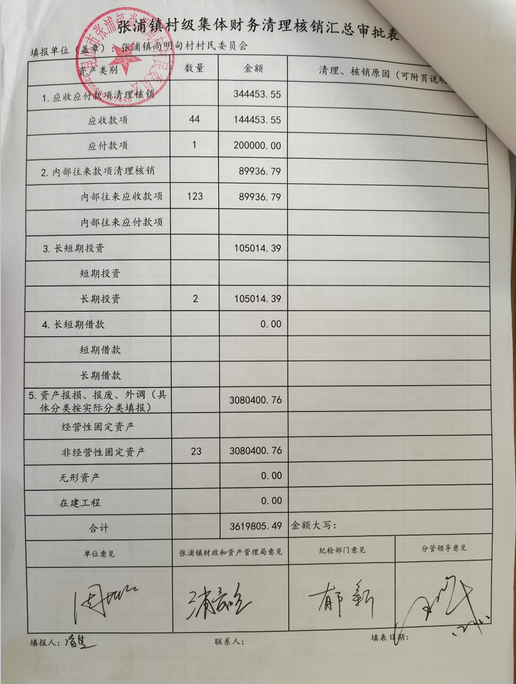 张浦镇村级集体财务清理核销汇总审批表
填报单位（盖章）：张浦镇尚明甸村村民委员会
资产类别 数量 金额 清理、核销原因（可附页说明
1.应收应付款项清理核销 344453.55
应收款项 44 144453.55
应付款项 1 200000.00
2.内部往来款项清理核销 89936.79
内部往来应收款项 123 89936.79
内部往来应付款项
3.长短期投资 105014.39
短期投资
长期投资 2 105014.39
4.长短期借款 0.00
短期借款
长期借款
5.资产报损、报废、外调（具
体分类按实际分类填报） 3080400.76
经营性固定资产
非经营性固定资产 23 3080400.76
无形资产 0.00
在建工程 0.00
合计 3619805.49 金额大写：
单位意见 张浦镇财政和资产管理局意见 纪检部门意见 分管领导意见
郁新
填报人： 联系人： 填表日期：